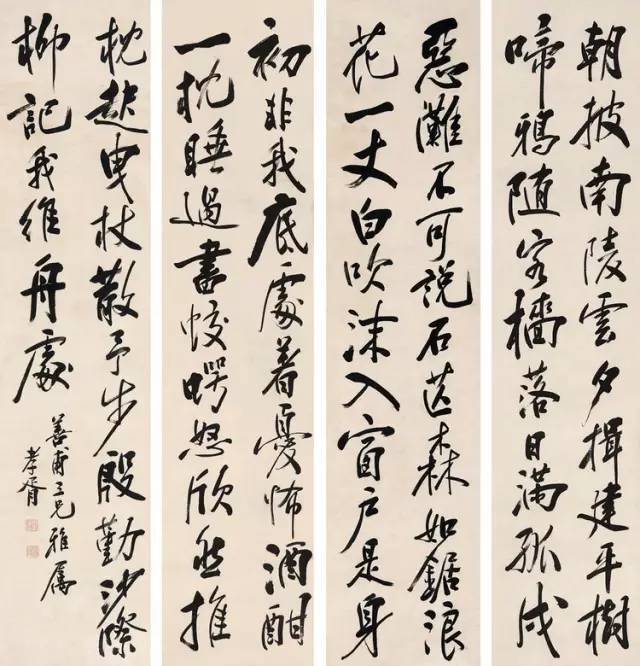 朝披南陵雲夕揖建平樹
啼鴉随客檣落日滿孤戍
惡灘不可説石芒森如鋸浪
花一丈白吹沫入窗戶是身
初非我底處着憂怖酒酣
一枕睡過盡蛟鰐怒欣然推
枕起曳杖散予步殷勤沙際
柳記我維舟處
善甫三兄雅屬
孝胥